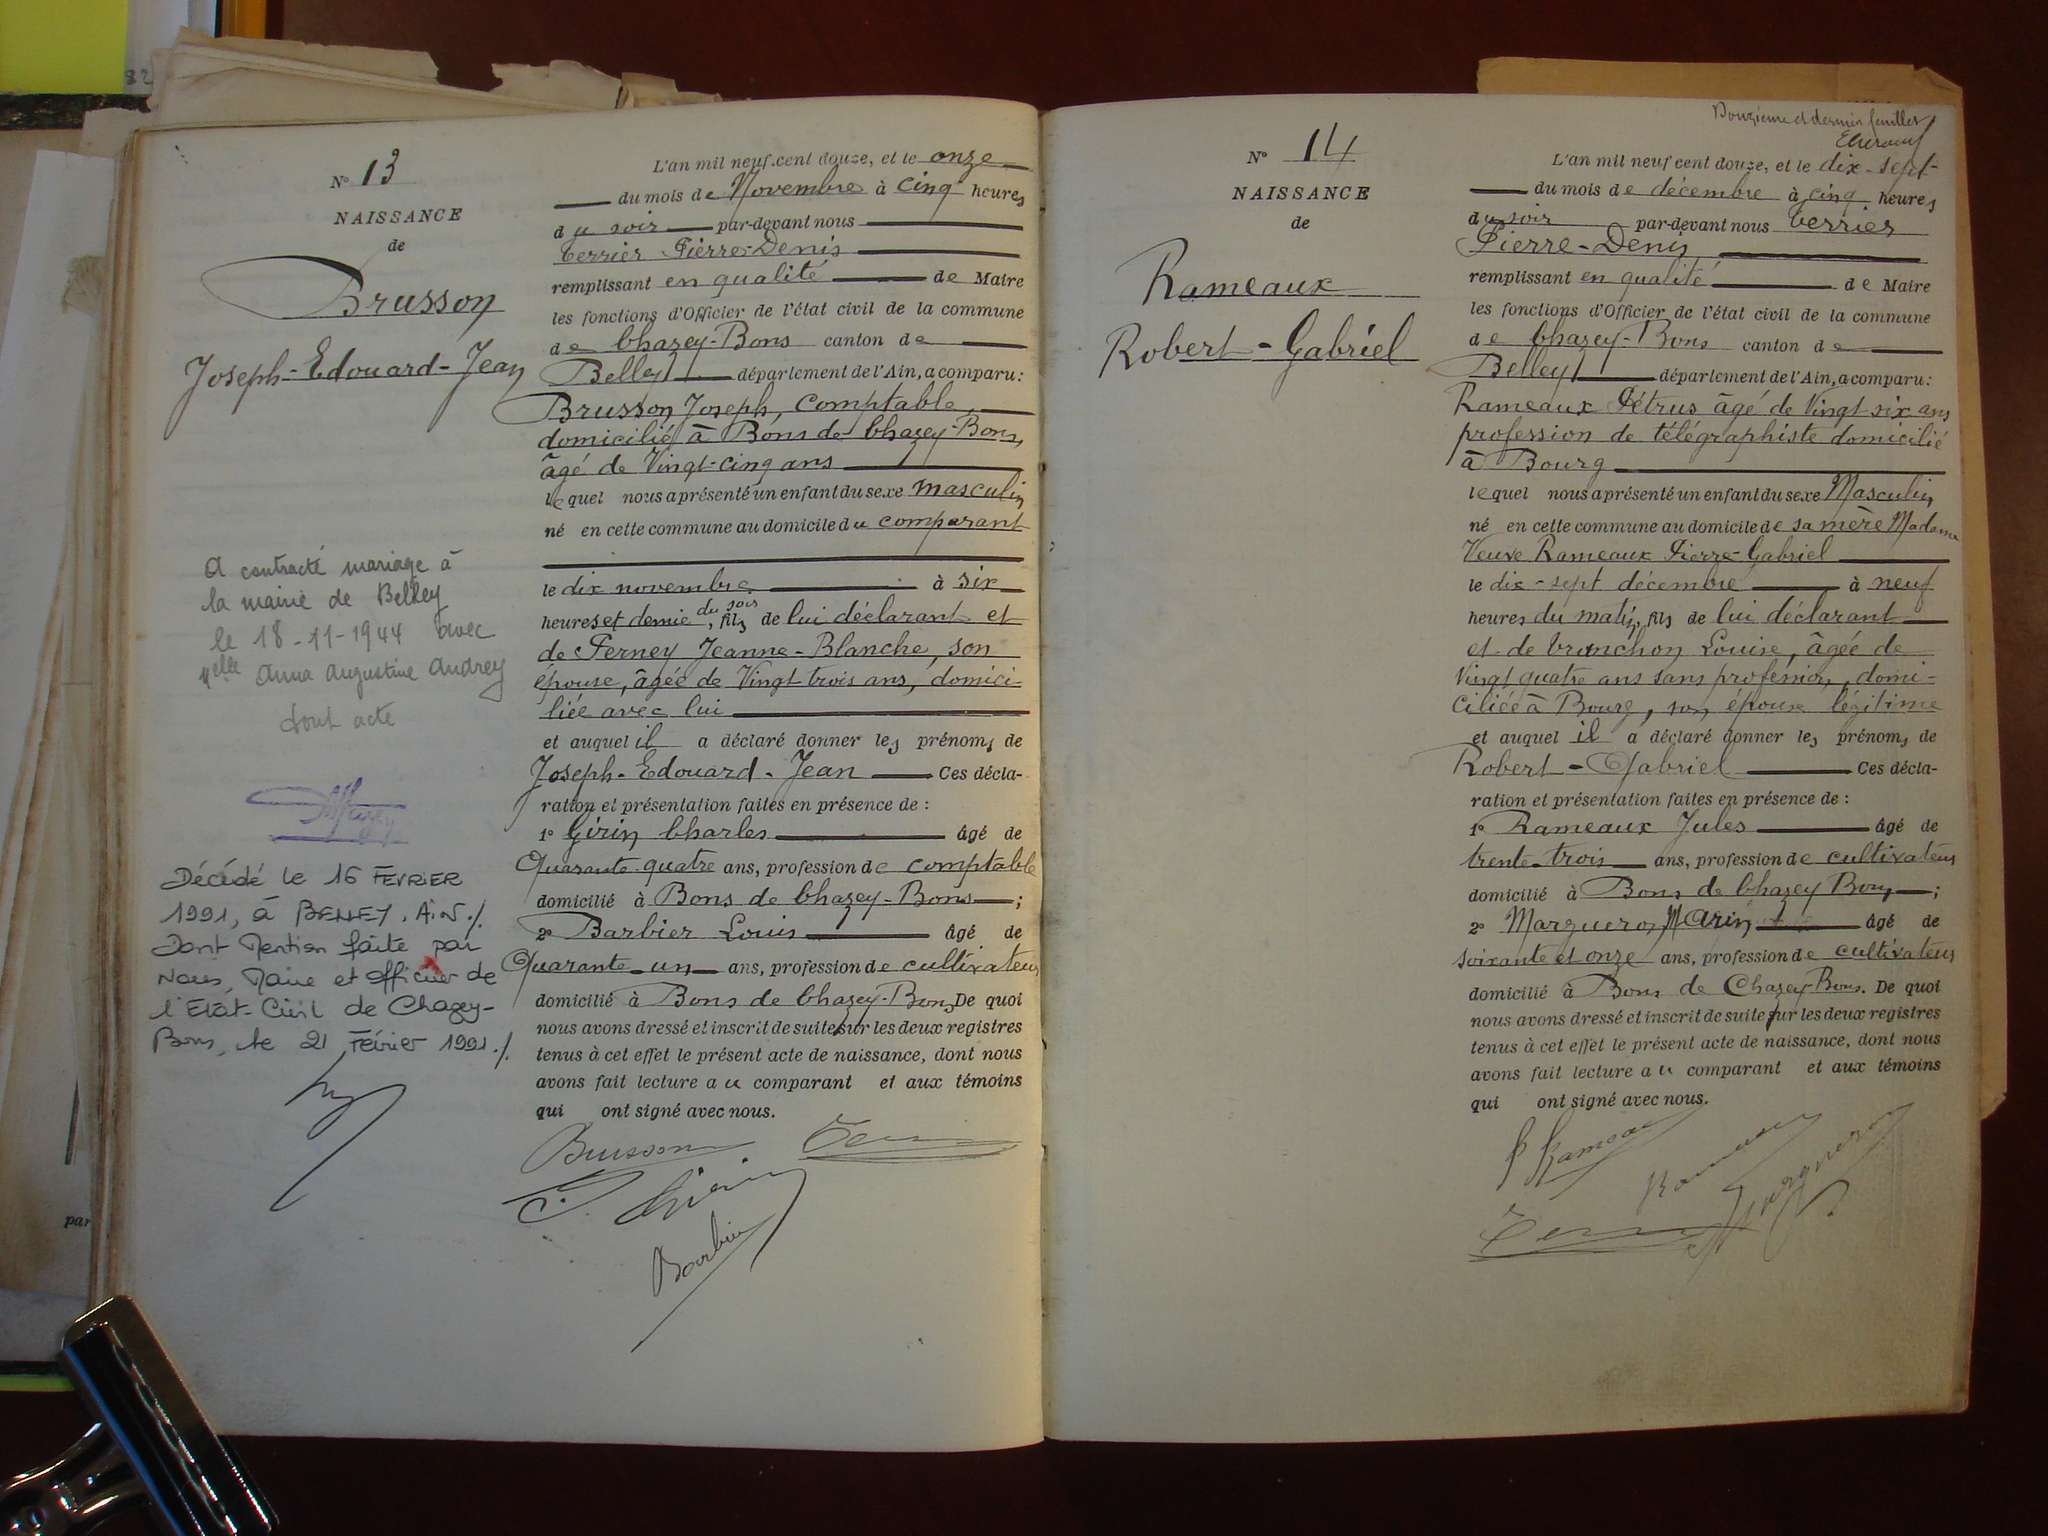 N° 13
NAISSANCE
de
Brusson
Joseph-Edouard-Jean
A contracté mariage à
la mairie de Belley
le 18-11-1944 avec
Melle Anna Augustine Andrey
dont acte
Décédé le 16 FEVRIER
1991, à BELLEY. AiN./.
Dont Mention faite par
Nous, Maire et officier de
l'Etat-Civil de Chazey-
Bons, le 21 Février 1991./.
L'an mil neuf cent douze, et le onze
du mois de Novembre à cinq heures
du soir par-devant nous
Terrier Pierre-Denis
remplissant en qualité de Maire
les fonctions d'Officier de l'état civil de la commune
de Chazey-Bons canton de
Belley département de l'Ain, a comparu :
Brusson Joseph, comptable,
domicilié à Bons de Chazey-Bons,
âgé de Vingt-cinq ans
lequel nous a présenté un enfant du sexe masculin
né en cette commune au domicile du comparant
le dix novembre à six
heures et demie du soir, fils de lui déclarant et
de Ferney Jeanne-Blanche, son
épouse, âgée de Vingt trois ans, domici-
liée avec lui
et auquel il a déclaré donner les prénoms de
Joseph-Edouard-Jean Ces décla-
ration et présentation faites en présence de :
1° Girin Charles âgé de
Quarante-quatre ans, profession de comptable
domicilié à Bons de Chazey-Bons ;
2° Barbier Louis âgé de
Quarante-un ans, profession de cultivateur
domicilié à Bons de Chazey-Bons De quoi
nous avons dressé et inscrit de suite sur les deux registres
tenus à cet effet le présent acte de naissance, dont nous
avons fait lecture au comparant et aux témoins
qui ont signé avec nous.
Brusson
C. Girin
Barbier
Douzième et dernier feuillet
N° 14
NAISSANCE
de
Rameaux
Robert-Gabriel
L'an mil neuf cent douze, et le dix-sept
du mois de décembre à cinq heures
du soir par-devant nous Terrier
Pierre-Denis
remplissant en qualité de Maire
les fonctions d'Officier de l'état civil de la commune
de Chazey-Bons canton de
Belley département de l'Ain, a comparu :
Rameaux Pétrus âgé de Vingt-six ans
profession de télégraphiste domicilié
à Bourg
lequel nous a présenté un enfant du sexe Masculin
né en cette commune au domicile de sa mère Madame
Veuve Rameaux Pierre-Gabriel
le dix-sept décembre à neuf
heures du matin, fils de lui déclarant
et de Tronchon Louise, âgée de
Vingt quatre ans sans profession, domi-
ciliée à Bourg, son épouse légitime
et auquel il a déclaré donner les prénoms de
Robert-Gabriel Ces décla-
ration et présentation faites en présence de :
1° Rameaux Jules âgé de
trente-trois ans, profession de cultivateur
domicilié à Bons de Chazey Bons ;
2° Margueron Marin âgé de
soixante et onze ans, profession de cultivateur
domicilié à Bons de Chazey-Bons. De quoi
nous avons dressé et inscrit de suite sur les deux registres
tenus à cet effet le présent acte de naissance, dont nous
avons fait lecture au comparant et aux témoins
qui ont signé avec nous.
P Rameaux
Rameaux
Margueron
par